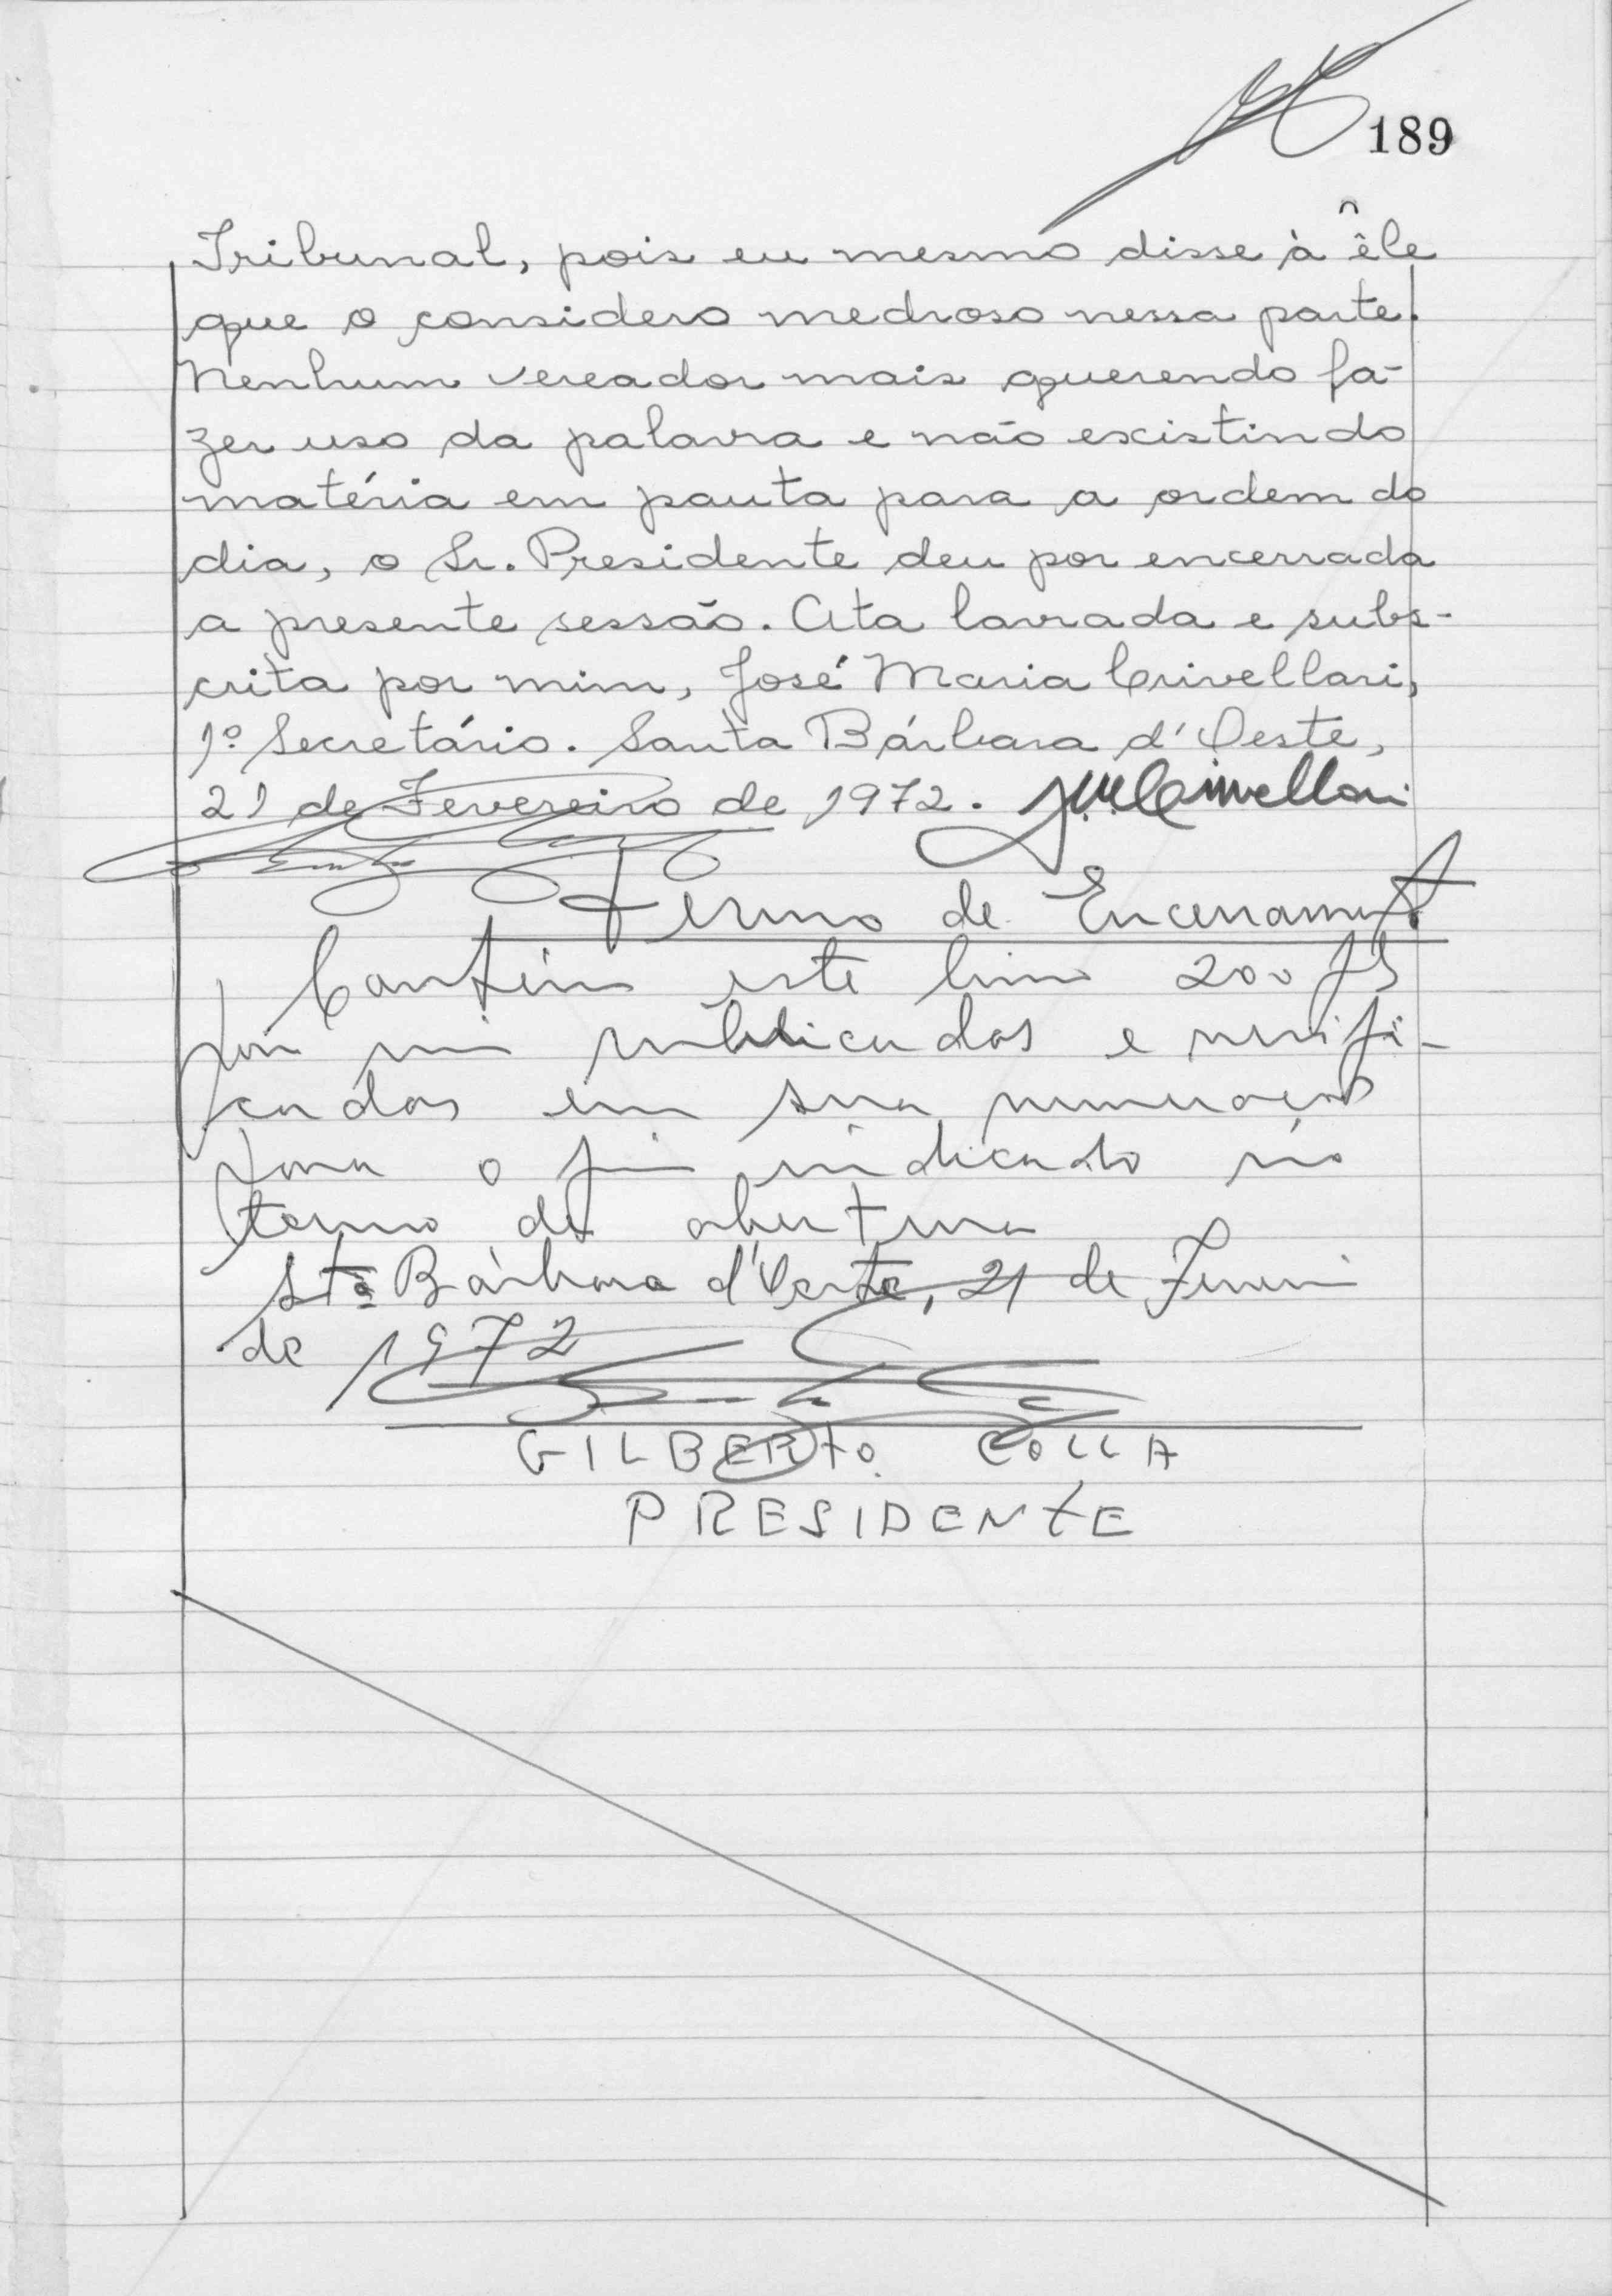 189
Tribunal, pois eu mesmo disse à êle
que o considero medroso nessa parte.
Nenhum vereador mais querendo fa-
zer uso da palavra e não existindo
matéria em pauta para a ordem do
dia, o Sr. Presidente deu por encerrada
a presente sessão. Ata lavrada e subs-
crita por mim, José Maria Crivellari,
1º Secretário. Santa Bárbara d'Oeste,
21 de Fevereiro de 1972. J.M.Crivellari
Termo de Encerramento
Contém este livro 200 fls
por mim rubricadas e verifi-
cadas em sua numeração
para o fim indicado no
termo de abertura
Stª Bárbara d'Oeste, 21 de Fevereiro
de 1972
GILBERTO COLLA
PRESIDENTE